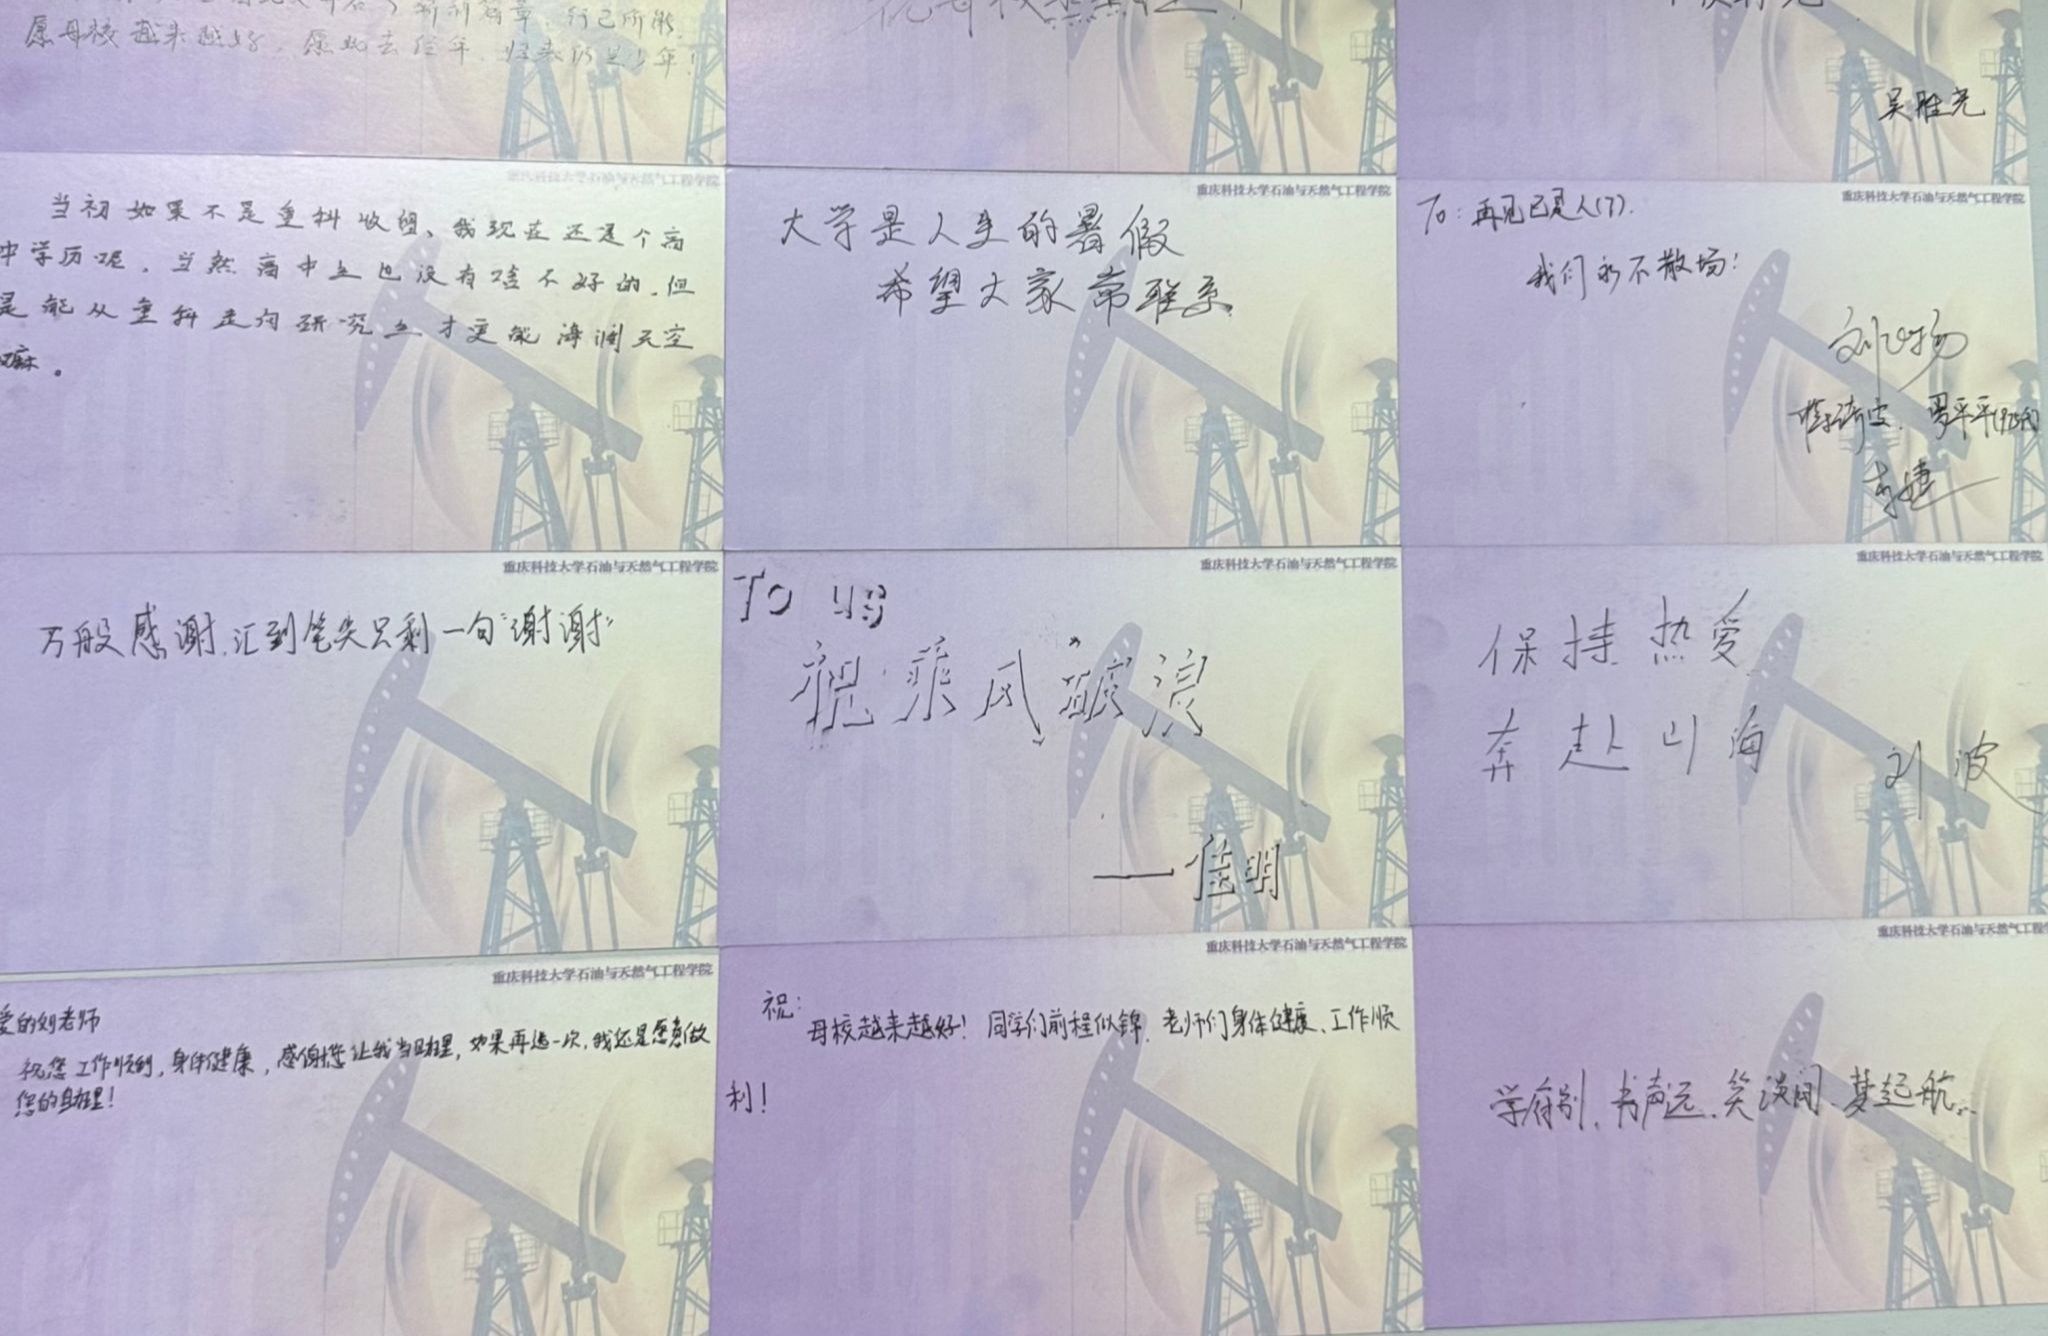 愿母校越来越好，愿此去经年，归来仍是少年！
吴胜尧
重庆科技大学石油与天然气工程学院
当初如果不是重科收留、我现在还是个高
中学历呢，当然高中生也没有啥不好的，但
是能从重科走向研究生才更能海阔天空
嘛。
重庆科技大学石油与天然气工程学院
大学是人生的暑假
希望大家常联系
重庆科技大学石油与天然气工程学院
To：再见已是人(了).
我们永不散场！
重庆科技大学石油与天然气工程学院
万般感谢，汇到笔尖只剩一句“谢谢”
重庆科技大学石油与天然气工程学院
To us
祝乘风破浪
——佳明
重庆科技大学石油与天然气工程学院
保持热爱
奔赴山海
刘波
重庆科技大学石油与天然气工程学院
爱的刘老师
祝您工作顺利，身体健康，感谢您让我当助理，如果再选一次，我还是愿意做
您的助理！
重庆科技大学石油与天然气工程学院
祝：
母校越来越好！同学们前程似锦，老师们身体健康、工作顺
利！
重庆科技大学石油与天然气工程学
学府别，书声远，笑谈间，梦起航...